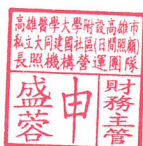 高雄醫學大學附設高雄市
私立大同建國社區(日間照顧)
長照機構營運團隊
財務主管
申
盛蓉